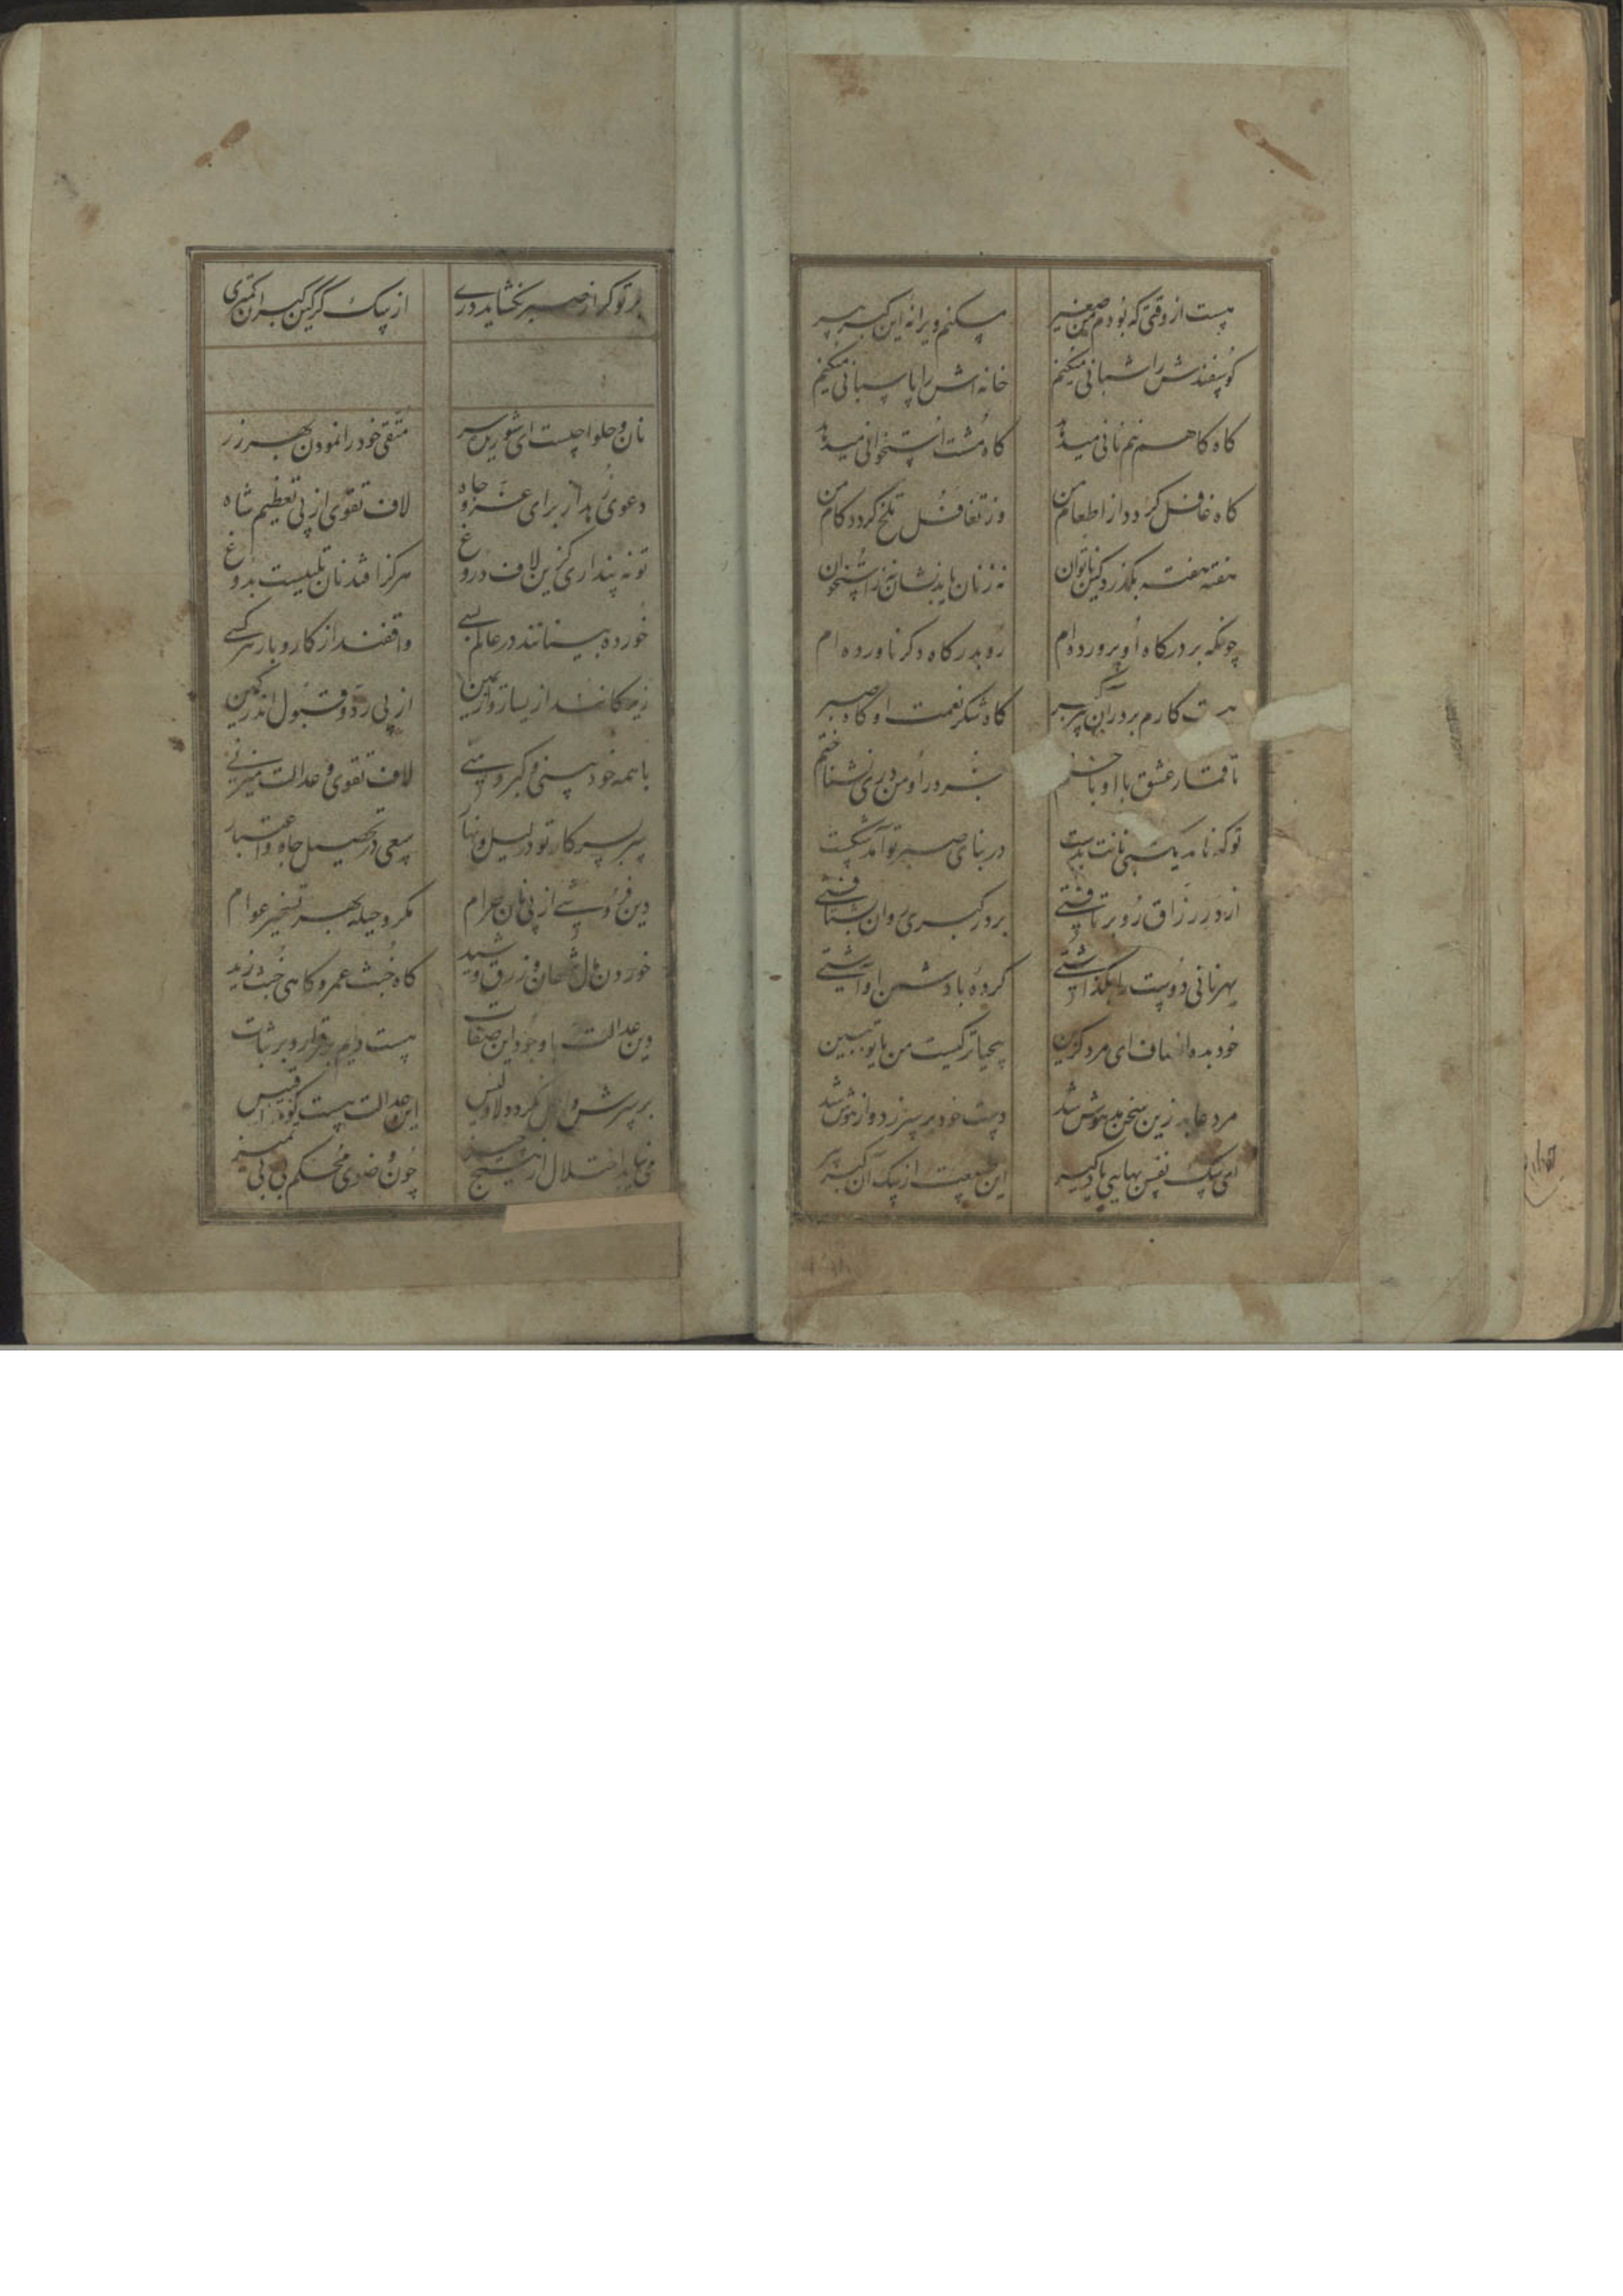 هست از وقتی که بودم من صغیر مسکنم ویرانه این کبر پیر
کوسفندش را شبانی میکنم خانه اش را پاسبانی میکنم
کاه کاهم نیم نانی میدهد کاه مشت استخوانی میدهد
کاه غافل کردد از اطعام من وز تغافل تلخ کردد کام من
هفته هفته بکذرد کین ناتوان نه ز نان یابد نشان نه ز استخوان
چونکه بر درکاه او پرورده ام رو بدرکاه دکر ناورده ام
هست کارم بر در آن پیر کبر کاه شکر نعمت او کاه صبر
تا قمار عشق با او باختم جز در او من دری نشناختم
تو که نامد یک شبی نانت بدست در بنای صبر تو آمد شکست
از در رزاق رو بر تافتی بر در کبری روان بشتافتی
بهر نانی دوست را بکذاشتی کرده با دشمن او آشتی
خود بده انصاف ای مرد کزین بیحیاتر کیست من یا تو ببین
مرد عابد زین سخن مدهوش شد دست خود بر سر زد و از هوش شد
ای سک نفس بهایی یاد کیر این از سک آن کبر پیر
بر تو کر از صبر نکشاید دری از سک کرکین کبران کمتری
نان و حلوا چیست ای شوریده سر متقی خود را نمودن بهر زر
دعوی زهد از برای عز و جاه لاف تقوی از پی تعظیم شاه
تو نه پنداری کزین لاف و دروغ هرکز افتد نان تلبیست بدوغ
خورده بینانند در عالم بسی واقفند از کار و بار هر کسی
زیرکانند از یسار و از یمین از پی رد و قبول اندر کمین
با همه خودبینی و کبر و منی لاف تقوی و عدالت میزنی
سر بسر کار تو در لیل و نهار سعی در تحصیل جاه و اعتبار
دین فروشی از پی نان حرام مکر و حیله بهر تسخیر عوام
خوردن مال شهان و زرق و شید کاه خبث عمرو کاهی خبث زید
وین عدالت با وجود این صفات هست دایم برقرار و بر ثبات
بر سرش داخل نکردد لا و لیس این عدالت هست کوه بو قبیس
می نیابد اختلال از هیچ چیز چون وضوی محکم بی بی تمیز